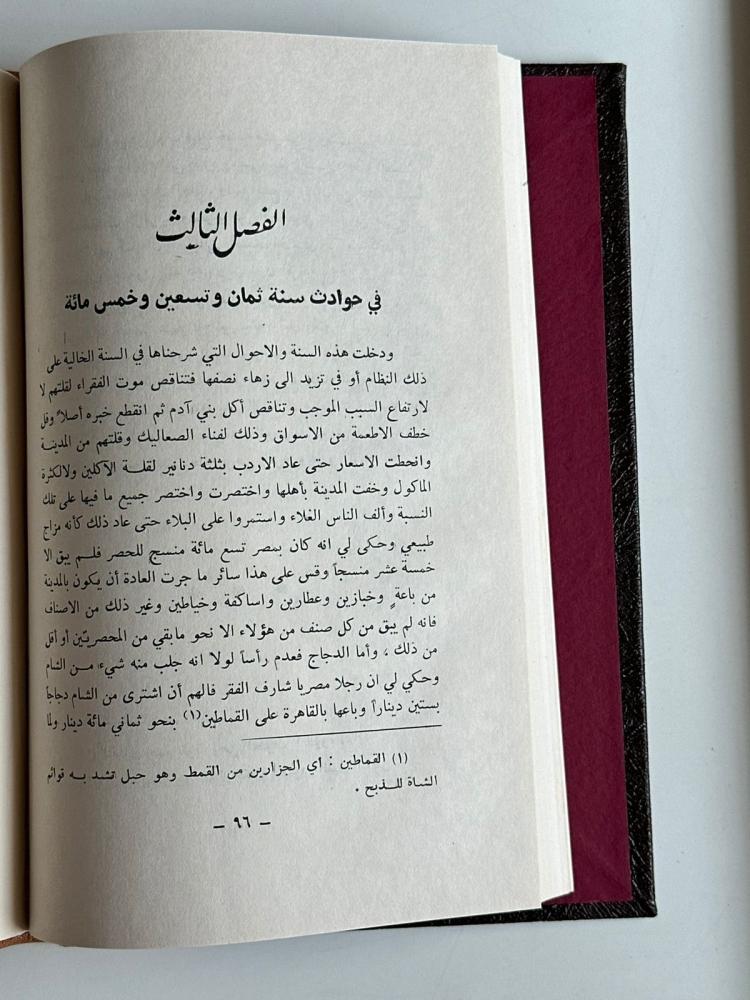 الفصل الثالث
في حوادث سنة ثمان وتسعين وخمس مائة
ودخلت هذه السنة والاحوال التي شرحناها في السنة الخالية على
ذلك النظام أو في تزيد الى زهاء نصفها فتناقص موت الفقراء لقلتهم لا
لارتفاع السبب الموجب وتناقص أكل بني آدم ثم انقطع خبره أصلاً وقل
خطف الاطعمة من الاسواق وذلك لفناء الصعاليك وقلتهم من المدينة
وانحطت الاسعار حتى عاد الاردب بثلثة دنانير لقلة الآكلين ولالكثرة
الماكول وخفت المدينة بأهلها واختصرت واختصر جميع ما فيها على تلك
النسبة وألف الناس الغلاء واستمروا على البلاء حتى عاد ذلك كأنه مزاج
طبيعي وحكى لي انه كان بمصر تسع مائة منسج للحصر فلم يبق الا
خمسة عشر منسجاً وقس على هذا سائر ما جرت العادة أن يكون بالمدينة
من باعة وخبازين وعطارين واساكفة وخياطين وغير ذلك من الاصناف
فانه لم يبق من كل صنف من هؤلاء الا نحو مابقي من المحصريين أو أقل
من ذلك ، وأما الدجاج فعدم رأساً لولا انه جلب منه شيء من الشام
وحكي لي ان رجلا مصريا شارف الفقر فالهم أن اشترى من الشام دجاجاً
بستين ديناراً وباعها بالقاهرة على القماطين(١) بنحو ثماني مائة دينار ولما
(١) القماطين : أي الجزارين من القمط وهو حبل تشد به قوائم
الشاة للذبح .
– ٩٦ –